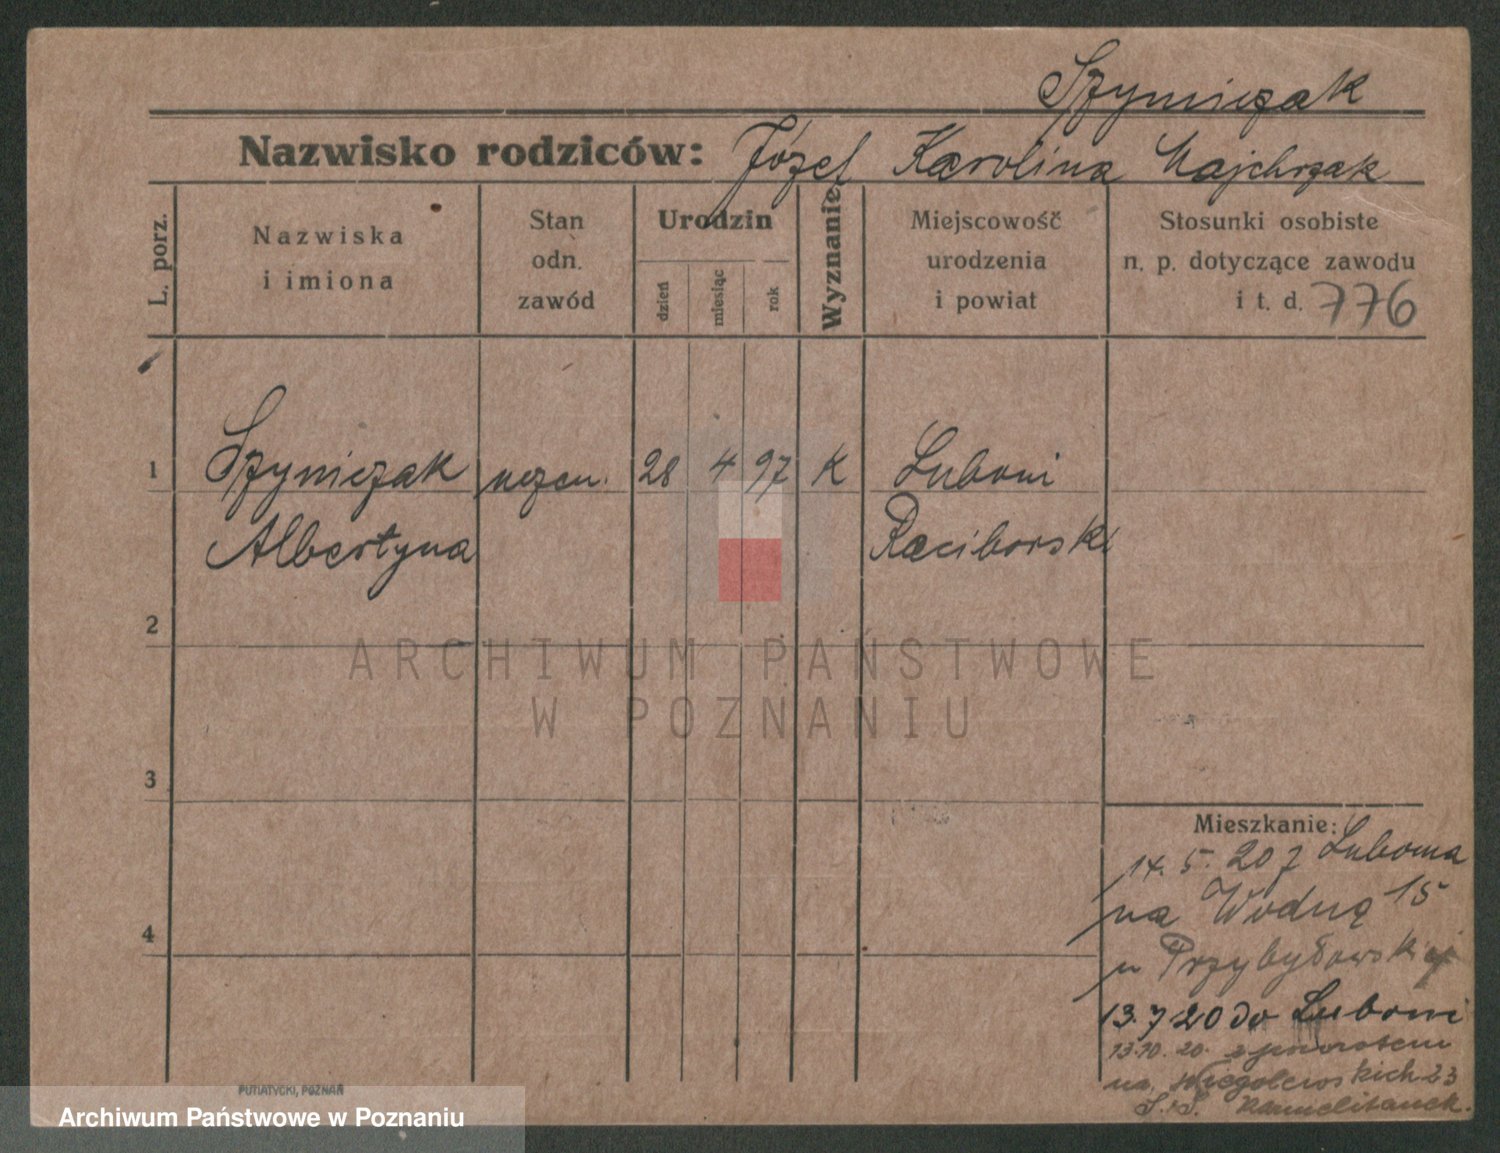 Szymczak
Nazwisko rodziców: Józef Karolina Majchrzak
L. porz.
Nazwiska
i imiona
Stan
odn.
zawód
Urodzin
dzień
miesiąc
rok
Wyznanie
Miejscowość
urodzenia
i powiat
Stosunki osobiste
n. p. dotyczące zawodu
i t. d. 776
1
Szymczak
28 4 97 K
Luboni
Albertyna
Raciborski
2
3
4
Mieszkanie:
14. 5. 20 z Luboma
na Wodną 15
u Przybyłowskiej
13.7 20 do Luboni
13.10.20. z powrotem
na Niegolewskich 23
S.S. Karmelitanek.
PUTIATYCKI, POZNAŃ
ARCHIWUM PAŃSTWOWE
W POZNANIU
Archiwum Państwowe w Poznaniu